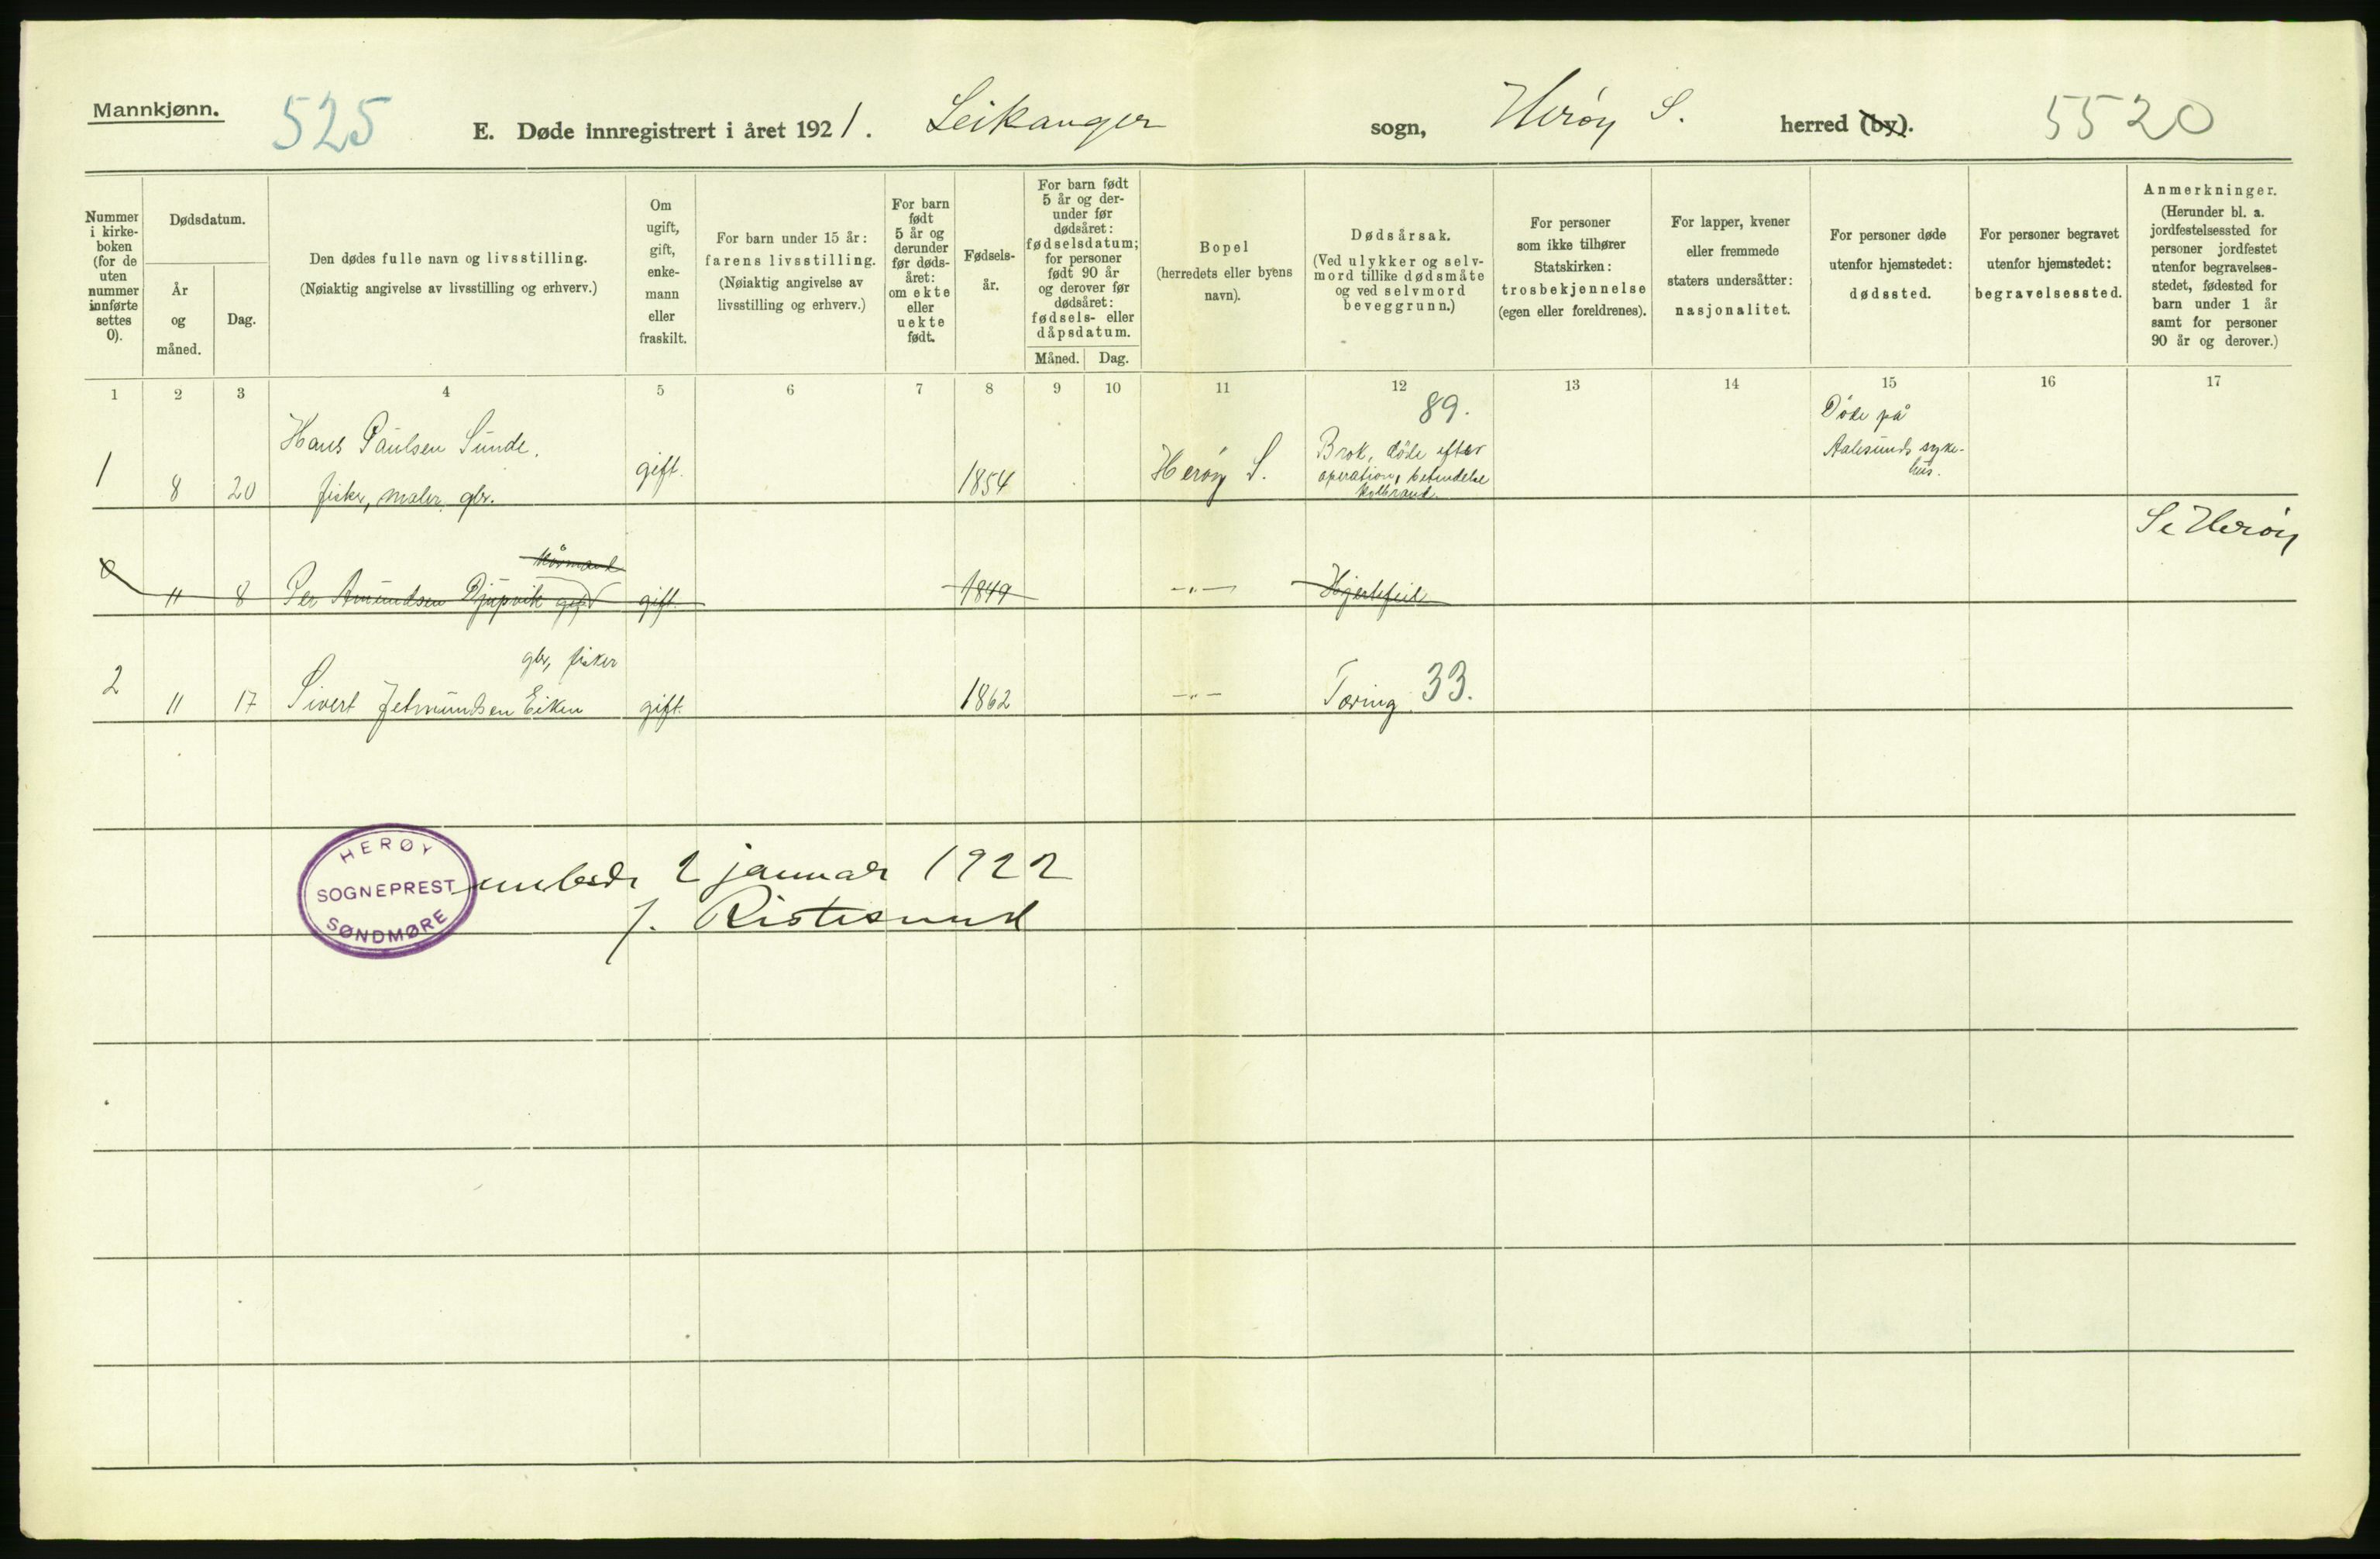 Mannkjønn.
525
E. Døde innregistrert i året 1921. Leikanger sogn, Herøy S. herred (by).
5520
Nummer
i kirke-
boken
(for de
uten
nummer
innførte
settes
0).
Dødsdatum.
År
og
måned.
Dag.
Den dødes fulle navn og livsstilling.
(Nøiaktig angivelse av livsstilling og erhverv.)
Om
ugift,
gift,
enke-
mann
eller
fraskilt.
For barn under 15 år:
farens livsstilling.
(Nøiaktig angivelse av
livsstilling og erhverv.)
For barn
født
5 år og
derunder
før døds-
året:
om ekte
eller
uekte
født.
Fødsels-
år.
For barn født
5 år og der-
under før
dødsåret:
fødselsdatum;
for personer
født 90 år
og derover før
dødsåret:
fødsels- eller
dåpsdatum.
Måned. Dag.
Bopel
(herredets eller byens
navn).
Dødsårsak.
(Ved ulykker og selv-
mord tillike dødsmåte
og ved selvmord
beveggrunn.)
For personer
som ikke tilhører
Statskirken:
trosbekjennelse
(egen eller foreldrenes).
For lapper, kvener
eller fremmede
staters undersåtter:
nasjonalitet.
For personer døde
utenfor hjemstedet:
dødssted.
For personer begravet
utenfor hjemstedet:
begravelsessted.
Anmerkninger.
(Herunder bl. a.
jordfestelsessted for
personer jordfestet
utenfor begravelses-
stedet, fødested for
barn under 1 år
samt for personer
90 år og derover.)
1 2 3 4 5 6 7 8 9 10 11 12 13 14 15 16 17
89.
Hans Paulsen Sunde.
1 8 20 fisker, maler, gbr. gift. 1854 Herøy S.
Brok, døde efter
operation, betendelse
Koldbrand.
Døde på
Aalesunds syke-
hus.
Se Herøy
Kårmand
0 11 8 Per Amundsen Djupvik gift 1849 -"- Hjertefeil
gbr, fisker
2 11 17 Sivert Jetmundsen Eiken gift. 1862 -"- Tæring. 33.
HERØY
SOGNEPREST
SØNDMØRE
embede 2 januar 1922
J. Ristesund